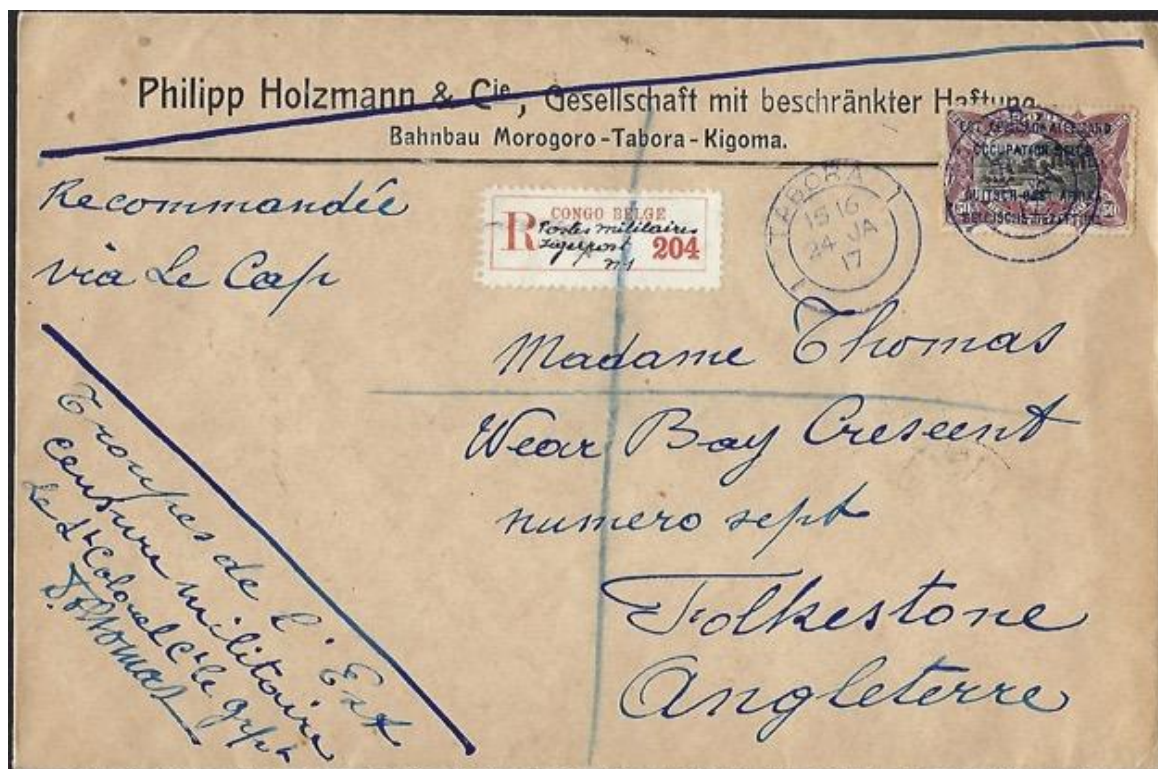 Philipp Holzmann & Cie, Gesellschaft mit beschränkter Haftung.
Bahnbau Morogoro-Tabora-Kigoma.
Recommandée
via Le Cap
R CONGO BELGE 204
Postes militaires
Legerpost
n·1
TABORA
15 16
24 JA
17
EST AFRICAIN ALLEMAND
OCCUPATION BELGE
DUITSCH OOST AFRIKA
BELGISCHE BEZETTING
Madame Thomas
Wear Bay Crescent
numero sept
Folkestone
Angleterre
Troupes de l'Est
Censure militaire
Le Lt Colonel Ct le grpt
Thomas